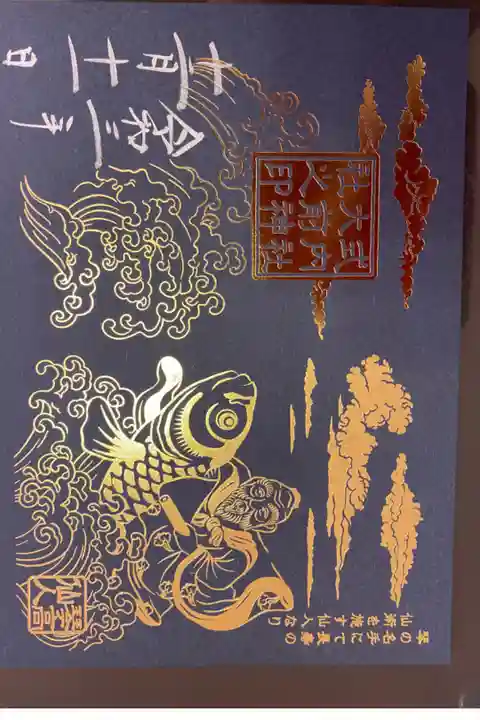 式内社
大前神
社之印
令和三年
十二月十一日
琴の名手にて長寿の
仙術を施す仙人なり
琴高
仙人